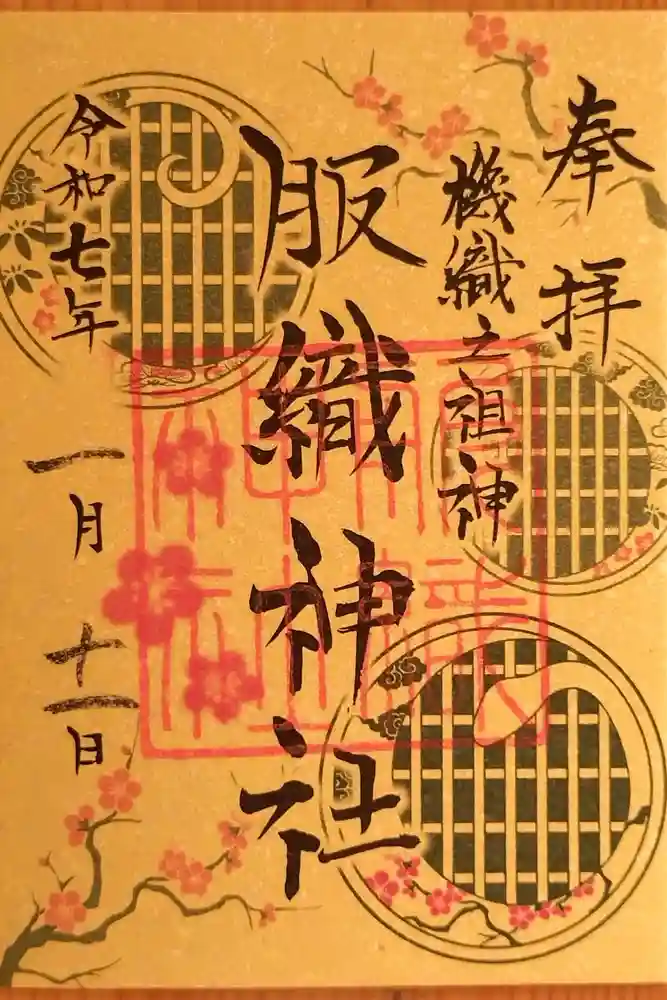 奉拝
機織之祖神
服織神社
令和七年
一月
十一日